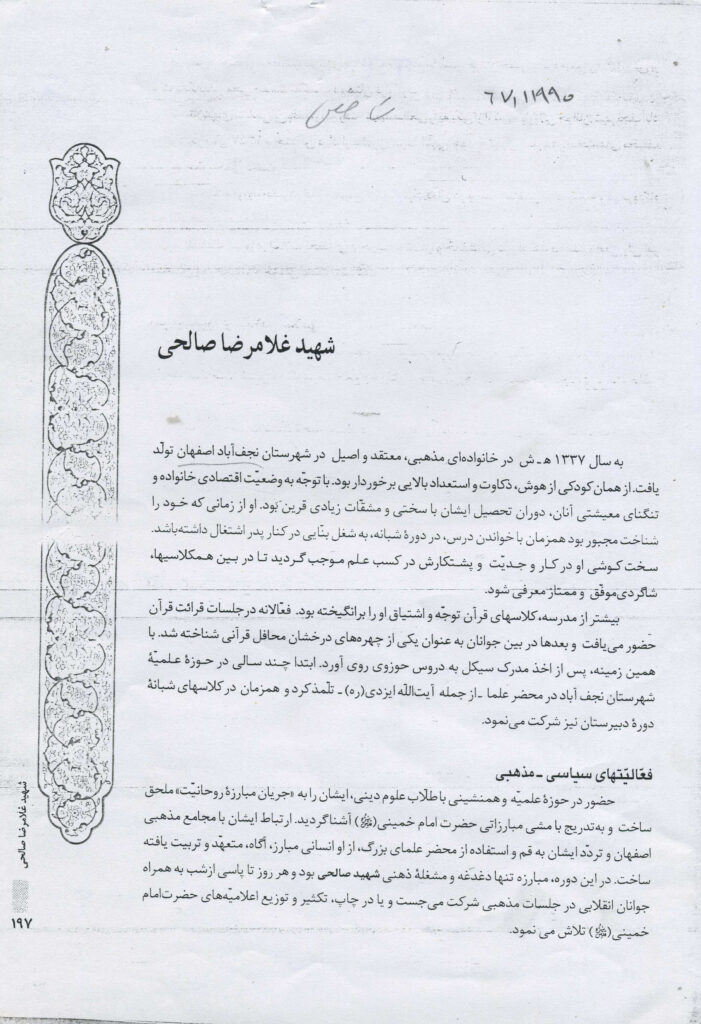 ۶۷۱۱۹۹۵
شهید غلامرضا صالحی
به سال ۱۳۳۷ هـ ـ ش در خانواده‌ای مذهبی، معتقد و اصیل در شهرستان نجف‌آباد اصفهان تولّد
یافت. از همان کودکی از هوش، ذکاوت و استعداد بالایی برخوردار بود. با توجّه به وضعیّت اقتصادی خانواده و
تنگنای معیشتی آنان، دوران تحصیل ایشان با سختی و مشقّات زیادی قرین بود. او از زمانی که خود را
شناخت مجبور بود همزمان با خواندن درس، در دورهٔ شبانه، به شغل بنّایی در کنار پدر اشتغال داشته‌باشد.
سخت‌کوشی او در کار و جدیّت و پشتکارش در کسب علم موجب گردید تا در بین همکلاسیها،
شاگردی‌موفّق و ممتاز معرفی شود.
بیشتر از مدرسه، کلاسهای قرآن توجّه و اشتیاق او را برانگیخته بود. فعّالانه درجلسات قرائت قرآن
حضور می‌یافت و بعدها در بین جوانان به عنوان یکی از چهره‌های درخشان محافل قرآنی شناخته شد. با
همین زمینه، پس از اخذ مدرک سیکل به دروس حوزوی روی آورد. ابتدا چند سالی در حوزهٔ علمیّهٔ
شهرستان نجف آباد در محضر علما ـ از جمله آیت‌اللّه ایزدی(ره) ـ تلّمذکرد و همزمان در کلاسهای شبانهٔ
دورهٔ دبیرستان نیز شرکت می‌نمود.
فعّالیّتهای سیاسی ـ مذهبی
حضور در حوزهٔ علمیّه و همنشینی با طلاب علوم دینی، ایشان را به «جریان مبارزهٔ روحانیّت» ملحق
ساخت و به‌تدریج با مشی مبارزاتی حضرت امام خمینی(ﷺ) آشناگردید. ارتباط ایشان با مجامع مذهبی
اصفهان و تردّد ایشان به قم و استفاده از محضر علمای بزرگ، از او انسانی مبارز، آگاه، متعهّد و تربیت یافته
ساخت. در این دوره، مبارزه تنها دغدغه و مشغلهٔ ذهنی شهید صالحی بود و هر روز تا پاسی ازشب به همراه
جوانان انقلابی در جلسات مذهبی شرکت می‌جست و یا در چاپ، تکثیر و توزیع اعلامیّه‌های حضرت‌امام
خمینی(ﷺ) تلاش می نمود.
شهید غلامرضا صالحی
۱۹۷